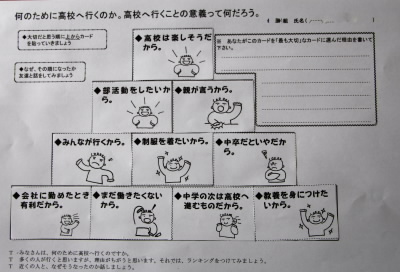 何のために高校へ行くのか。高校へ行くことの意義って何だろう。
◆大切だと思う順に上からカード
を貼っていきましょう
◆なぜ、その順になったか
友達と話をしてみましょう
※ あなたがこのカードを「最も大切」なカードに選んだ理由を書いて
下さい。
◆高校は楽しそうだ
から。
◆部活動をしたいか
ら。
◆親が言うから。
◆みんなが行くから。
◆制服を着たいから。
◆中卒だといやだか
ら。
◆会社に勤めたとき
有利だから。
◆まだ働きたくない
から。
◆中学の次は高校へ
進むものだから。
◆教養を身につけた
いから。
T みなさんは、何のために高校へ行くのですか。
T 多くの人が行くと思いますが、理由がちがうと思います。それでは、ランキングをつけてみましょう。
T 近くの人と、なぜそうなったのか話しましょう。